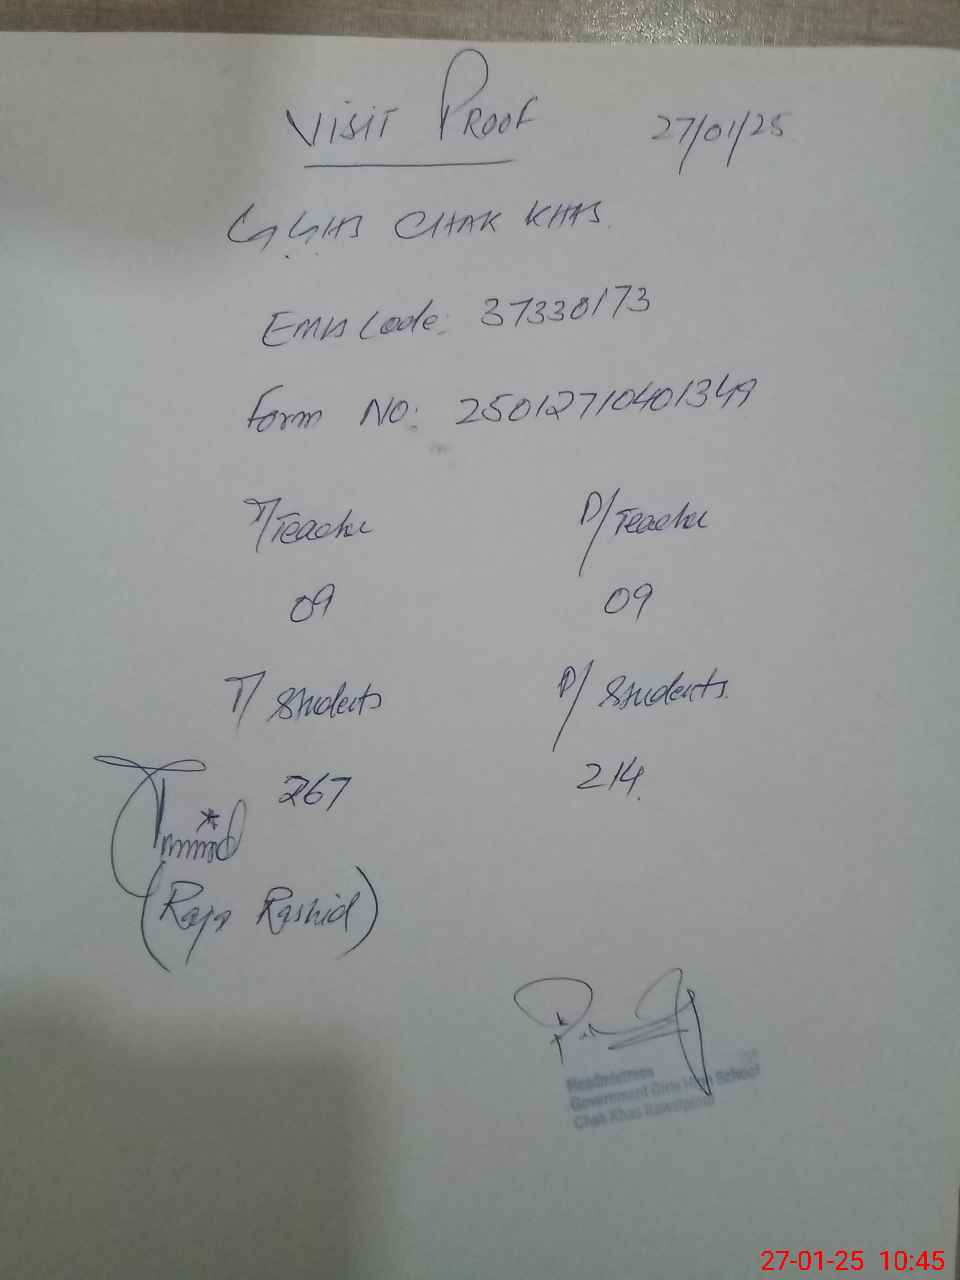 VISIT PROOF 27/01/25
GGHS CHAK KHAS.
EMIS Code: 37330173
Form NO: 25012710401349
T/Teacher P/Teacher
09 09
T/Students P/Students
267 214
(Raja Rashid)
Headmistress
Government Girls High School
Chak Khas Rawalpindi
27-01-25 10:45